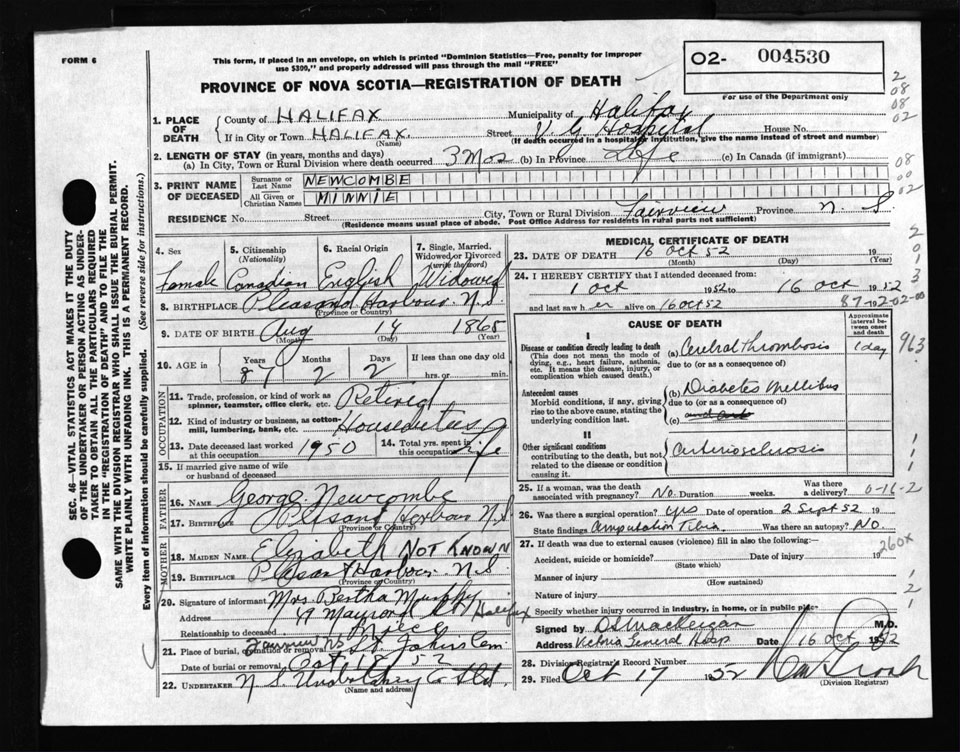 FORM 6
This form, if placed in an envelope, on which is printed "Dominion Statistics—Free, penalty for improper
use $300," and properly addressed will pass through the mail "FREE"
PROVINCE OF NOVA SCOTIA—REGISTRATION OF DEATH
02- 004530
For use of the Department only
2
08
08
02
1. PLACE OF DEATH
County of HALIFAX Municipality of Halifax
If in City or Town HALIFAX. Street V. G. Hospital House No.
(Name) (If death occurred in a hospital or institution, give the name instead of street and number)
2. LENGTH OF STAY (in years, months and days)
(a) In City, Town or Rural Division where death occurred 3 Mos (b) In Province Life (c) In Canada (if immigrant)
08
00
02
3. PRINT NAME OF DECEASED
Surname or Last Name NEWCOMBE
All Given or Christian Names MINNIE
RESIDENCE No. Street City, Town or Rural Division Fairview Province N. S.
(Residence means usual place of abode. Post Office Address for residents in rural parts not sufficient)
4. Sex 5. Citizenship (Nationality) 6. Racial Origin 7. Single, Married, Widowed or Divorced (write the word)
Female Canadian English Widowed
8. BIRTHPLACE Pleasand Harbour. N.S.
(Province or Country)
9. DATE OF BIRTH Aug 14 1865
(Month) (Day) (Year)
10. AGE in Years Months Days If less than one day old
87 2 2 hrs. or min.
OCCUPATION
11. Trade, profession, or kind of work as spinner, teamster, office clerk, etc. Retired
12. Kind of industry or business, as cotton mill, lumbering, bank, etc. Houseduties
13. Date deceased last worked at this occupation 1950 14. Total yrs. spent in this occupation Life
15. If married give name of wife or husband of deceased
FATHER
16. NAME George Newcombe
17. BIRTHPLACE Plesand Harbour N.S
(Province or Country)
MOTHER
18. MAIDEN NAME Elizabeth NOT KNOWN
19. BIRTHPLACE Pleasant Harbour. N.S.
(Province or Country)
20. Signature of informant Mrs. Bertha Murphy
Address 49 St Halifax
Relationship to deceased Niece
21. Place of burial, cremation or removal Fairview NS St. John's Cem.
Date of burial or removal Oct 18 52
22. UNDERTAKER N. S. Undertaking Co Ltd.
(Name and address)
MEDICAL CERTIFICATE OF DEATH
23. DATE OF DEATH 16 Oct 52 19
(Month) (Day) (Year)
24. I HEREBY CERTIFY that I attended deceased from:
1 Oct 1952 to 16 Oct 1952
and last saw her alive on 16 Oct 52
87-102-02-00
2
0
1
3
CAUSE OF DEATH
Approximate interval between onset and death
I
Disease or condition directly leading to death (a) Cerebral Thrombosis 1 day 963
(This does not mean the mode of dying, e.g., heart failure, asthenia, etc. It means the disease, injury, or complication which caused death.)
due to (or as a consequence of)
Antecedent causes (b) Diabetes Mellitus
Morbid conditions, if any, giving rise to the above cause, stating the underlying condition last.
due to (or as a consequence of)
(c)
II
Other significant conditions Arteriosclerosis
contributing to the death, but not related to the disease or condition causing it.
25. If a woman, was the death associated with pregnancy? No. Duration weeks. Was there a delivery? 0-16-2
26. Was there a surgical operation? Yes Date of operation 2 Sept 52
State findings Amputation Tibia Was there an autopsy? No.
27. If death was due to external causes (violence) fill in also the following:—
260x
Accident, suicide or homicide? Date of injury 19
(State which)
Manner of injury
(How sustained)
Nature of injury
Specify whether injury occurred in industry, in home, or in public place
Signed by M.D.
Address Victoria General Hosp Date 16 Oct 1952
28. Division Registrar's Record Number
29. Filed Oct 17 1952
(Division Registrar)
SEC. 46—VITAL STATISTICS ACT MAKES IT THE DUTY
OF THE UNDERTAKER OR PERSON ACTING AS UNDER-
TAKER TO OBTAIN ALL THE PARTICULARS REQUIRED
IN THE "REGISTRATION OF DEATH" AND TO FILE THE
SAME WITH THE DIVISION REGISTRAR WHO SHALL ISSUE THE BURIAL PERMIT.
WRITE PLAINLY WITH UNFADING INK. THIS IS A PERMANENT RECORD.
Every item of information should be carefully supplied. (See reverse side for instructions.)